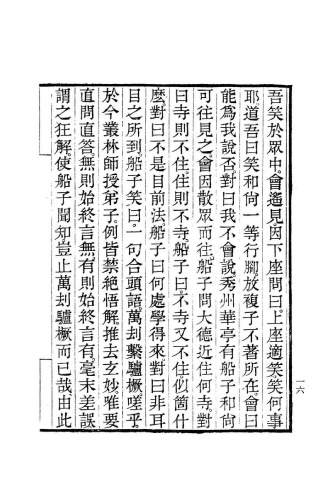 吾笑於眾中會遙見因下座問曰上座適笑笑何事
耶道吾曰笑和尚一等行脚放複子不著所在會曰
能為我說否對曰我不會說秀州華亭有船子和尚
可往見之會因散眾而往船子問大德近住何寺對
曰寺則不住住則不寺船子曰不寺又不住似箇什
麼對曰不是目前法船子曰何處學得來對曰非耳
目之所到船子笑曰一句合頭語萬刧繫驢橛嗟乎
於今叢林師授弟子例皆禁絕悟解推去玄妙唯要
直問直答無則始終言無有則始終言有毫末差誤
謂之狂解使船子聞知豈止萬刧驢橛而已哉由此
一六